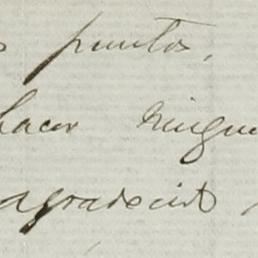 puntos,
hacer ningu
agradecido